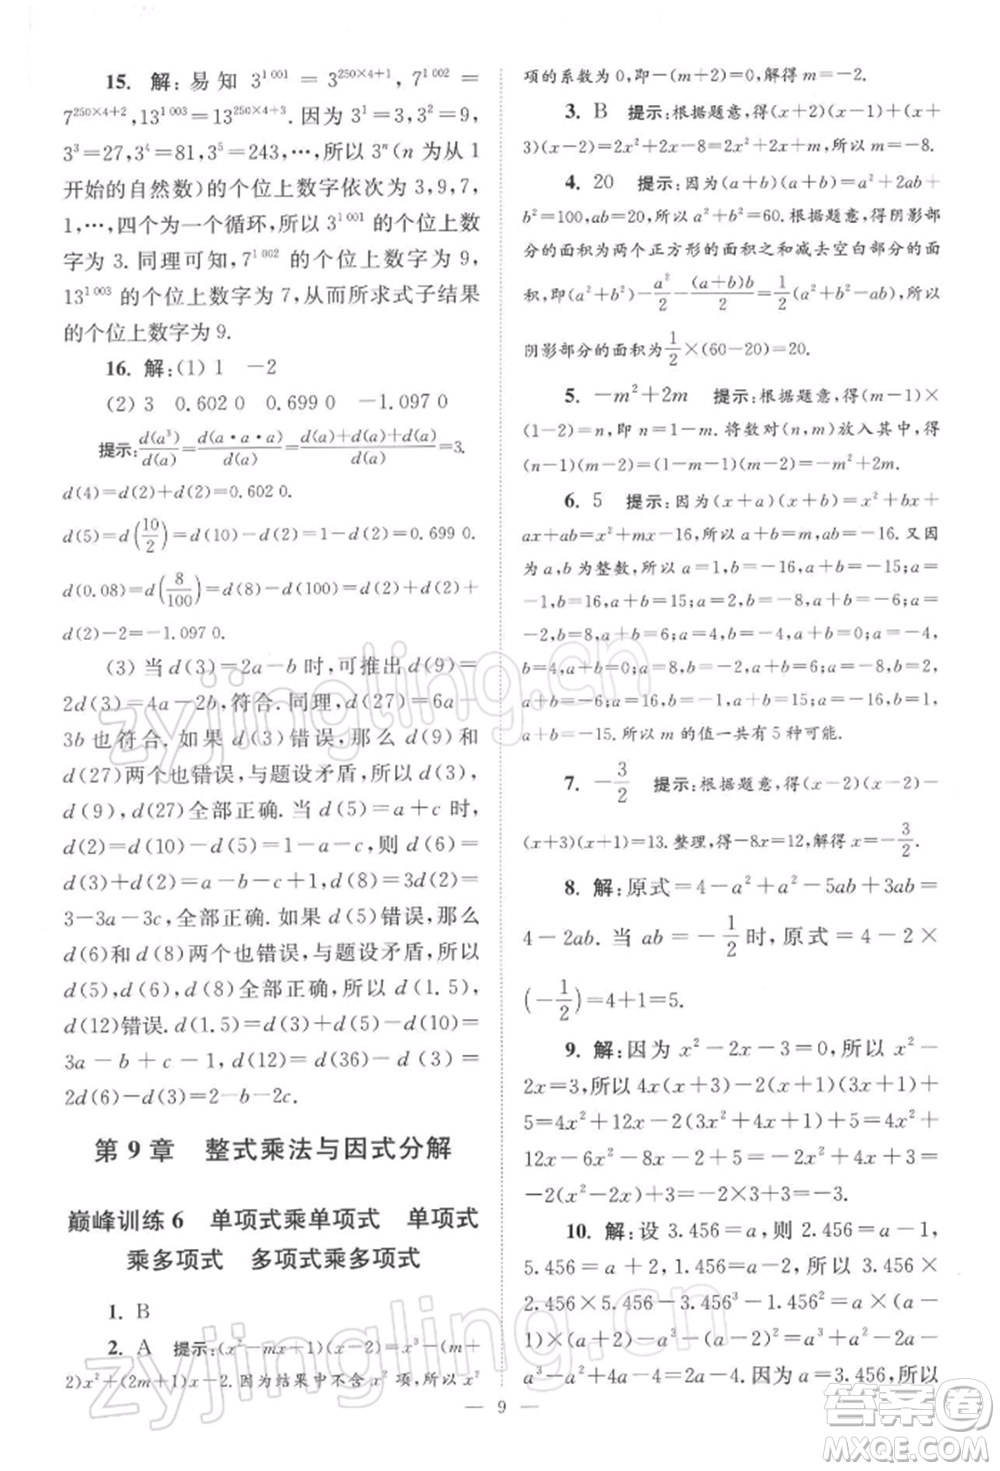 15. 解:易知 3^{1 001} = 3^{250×4+1}, 7^{1 002} =
7^{250×4+2}, 13^{1 003} = 13^{250×4+3}. 因为 3^1=3, 3^2=9,
3^3=27, 3^4=81, 3^5=243, …, 所以 3^n (n 为从 1
开始的自然数)的个位上数字依次为 3, 9, 7,
1, …, 四个为一个循环, 所以 3^{1 001} 的个位上数
字为 3. 同理可知, 7^{1 002} 的个位上数字为 9,
13^{1 003} 的个位上数字为 7, 从而所求式子结果
的个位上数字为 9.
16. 解:(1) 1 −2
(2) 3 0.602 0 0.699 0 −1.097 0
提示: d(a^3)/d(a) = d(a·a·a)/d(a) = (d(a)+d(a)+d(a))/d(a) = 3.
d(4)=d(2)+d(2)=0.602 0.
d(5)=d(10/2)=d(10)−d(2)=1−d(2)=0.699 0.
d(0.08)=d(8/100)=d(8)−d(100)=d(2)+d(4)−2=3
d(2)−2=−1.097 0.
(3) 当 d(3)=2a−b 时, 可推出 d(9)=
2d(3)=4a−2b, 符合. 同理, d(27)=6a−
3b 也符合. 如果 d(3)错误, 那么 d(9)和
d(27)两个也错误, 与题设矛盾, 所以 d(3),
d(9), d(27)全部正确. 当 d(5)=a+c 时,
d(2)=d(10)−d(5)=1−a−c, 则 d(6)=
d(2)+d(3)=a−b−c+1, d(8)=3d(2)=
3−3a−3c, 全部正确. 如果 d(5)错误, 那么
d(6)和 d(8)两个也错误, 与题设矛盾, 所以
d(5), d(6), d(8)全部正确, 所以 d(1.5),
d(12)错误. d(1.5)=d(3)+d(5)−d(10)=
3a−b+c−1, d(12)=d(36)−d(3)=
2d(6)−d(3)=2−b−2c.
第 9 章 整式乘法与因式分解
巅峰训练 6 单项式乘单项式 单项式
乘多项式 多项式乘多项式
1. B
2. A 提示:(x^2−mx+1)(x−2)=x^3−(m+
2)x^2+(2m+1)x−2. 因为结果中不含 x^2 项, 则 x^2
项的系数为 0, 即−(m+2)=0, 解得 m=−2.
3. B 提示:根据题意, 得(x+2)(x−1)+(x+
3)(x−2)=2x^2+2x−8=2(x^2+x)−8=−8. 所以 m=−8.
4. 20 提示:因为(a+b)(a+b)=a^2+2ab+
b^2=100, ab=20, 所以 a^2+b^2=60. 根据题意, 得阴影部
分的面积为两个正方形的面积之和减去空白部分的面
积, 即(a^2+b^2)−a^2/2−(a+b)b/2=1/2(a^2+b^2−ab), 所以
阴影部分的面积为1/2×(60−20)=20.
5. −m^2+2m 提示:根据题意, 得(m−1)×
(1−2)=n, 即 n=1−m. 将数对(n,m)放入其中, 得
(n−1)(m−2)=(1−m−1)(m−2)=−m^2+2m.
6. 5 提示:因为(x+a)(x+b)=x^2+bx+
ax+ab=x^2+mx−16, 所以 m=a+b, ab=−16. 又因
为 a,b 为整数, 所以 a=1, b=−16, a+b=−15; a=
−1, b=16, a+b=15; a=2, b=−8, a+b=−6; a=
−2, b=8, a+b=6; a=4, b=−4, a+b=0; a=−4,
b=4, a+b=0; a=−8, b=2, a+b=−6; a=8, b=
−2, a+b=6; a=16, b=−1, a+b=15; a=−16, b=1, a+
b=−15. 所以 m 的值一共有 5 种可能.
7. −3/2 提示:根据题意, 得(x−2)(x−2)−
(x+3)(x+1)=13. 整理, 得−8x=12, 解得 x=−3/2.
8. 解:原式=4−a^2+a^2−5ab+3ab=
4−2ab. 当 ab=−1/2 时, 原式=4−2×
(−1/2)=4+1=5.
9. 解:因为 x^2−2x−3=0, 所以 x^2−
2x=3, 所以 4x(x+3)−2(1+3x)(3x+1)+
9=4x^2+12x−2(9x^2+6x+1)+9=4x^2+
12x−18x^2−12x−2+9=
−2×3+3=−3.
10. 解:设 3.456=a, 则 2.456=a−1,
5.456=a+2, 1.456=a−2. 所以 3.456×
2.456×5.456−3.456^3−1.456^2=a×(a−
1)(a+2)−a^3−(a−2)^2=a^3+a^2−2a−
a^3−a^2+4a−4=2a−4. 因为 a=3.456, 所以
— 9 —
zyjingling.cn
zyjingling.cn
答案圈
MXQE.COM